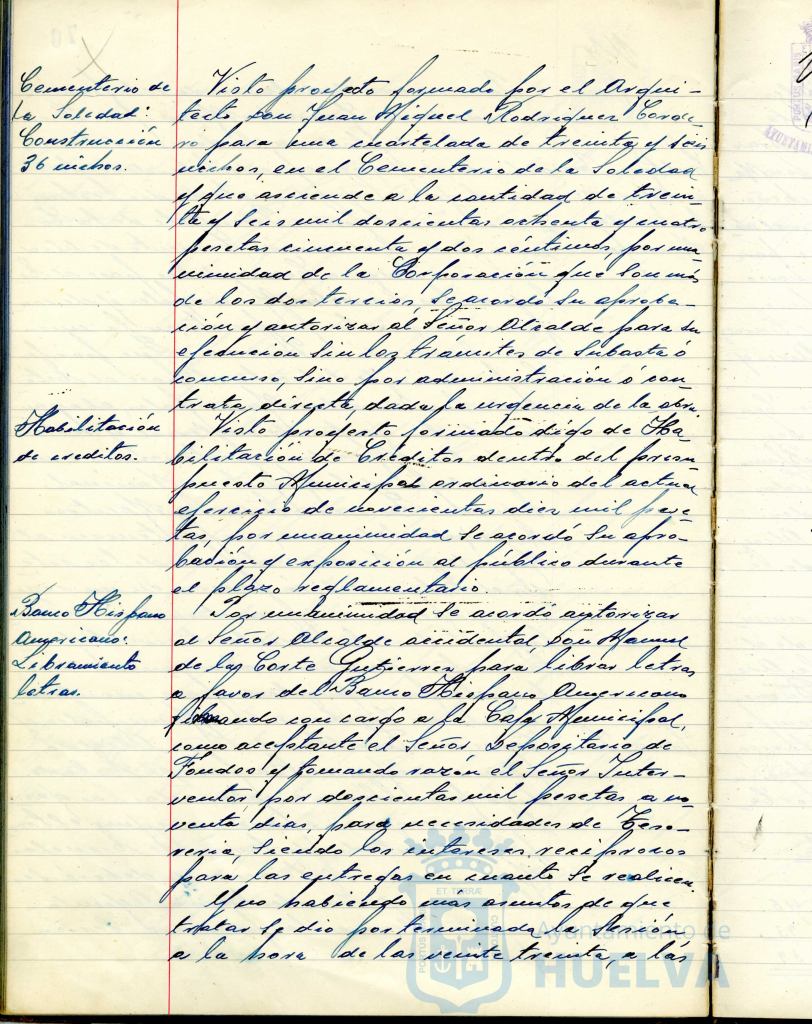 Cementerio de
la Soledad:
Construcción
36 nichos.
Visto proyecto formado por el Arqui-
tecto don Juan Miguel Rodriguez Corde-
ro para una cuartelada de treinta y seis
nichos, en el Cementerio de la Soledad
y que asciende a la cantidad de trein-
ta y seis mil doscientas ochenta y cuatro
pesetas cincuenta y dos céntimos, por una-
nimidad de la Corporación que son más
de los dos tercios, se acordó su aproba-
ción y autorizar al Señor Alcalde para su
ejecución sin los trámites de subasta ó
concurso, sino por administración ó con-
trata directa, dada la urgencia de la obra.
Habilitación
de creditos.
Visto proyecto formado digo de Ha-
bilitación de Creditos dentro del presu-
puesto Municipal ordinario del actual
ejercicio de novecientas diez mil pese-
tas, por unanimidad se acordó su apro-
bación y exposición al público durante
el plazo reglamentario.
Banco Hispano
Americano:
Libramiento
letras.
Por unanimidad se acordó autorizar
al Señor Alcalde accidental, Don Manuel
de la Corte Gutierrez para librar letras
a favor del Banco Hispano Americano
girando con cargo a la Caja Municipal,
como aceptante el Señor Depositario de
Fondos y tomando razón el Señor Inter-
ventor, por doscientas mil pesetas a no-
venta dias, para necesidades de Teso-
reria, siendo los intereses reciprocos
para las entregas en cuanto se realicen.
Y no habiendo mas asuntos de que
tratar se dio por terminada la sesión
a la hora de las veinte treinta, a las
Ayuntamiento de
HUELVA